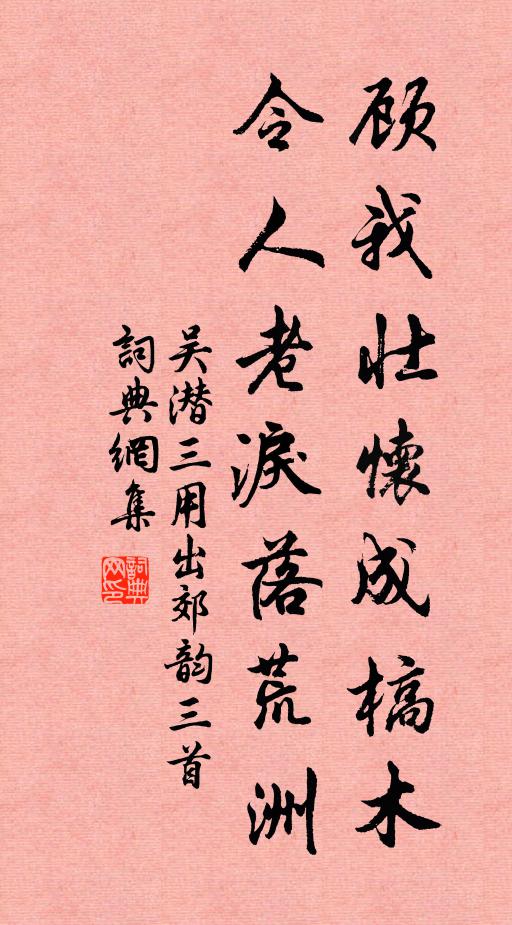 顾我壮懷成槁木
令人老淚落荒洲
吴潜三用出郊韵三首
詞典網集
詞典網印